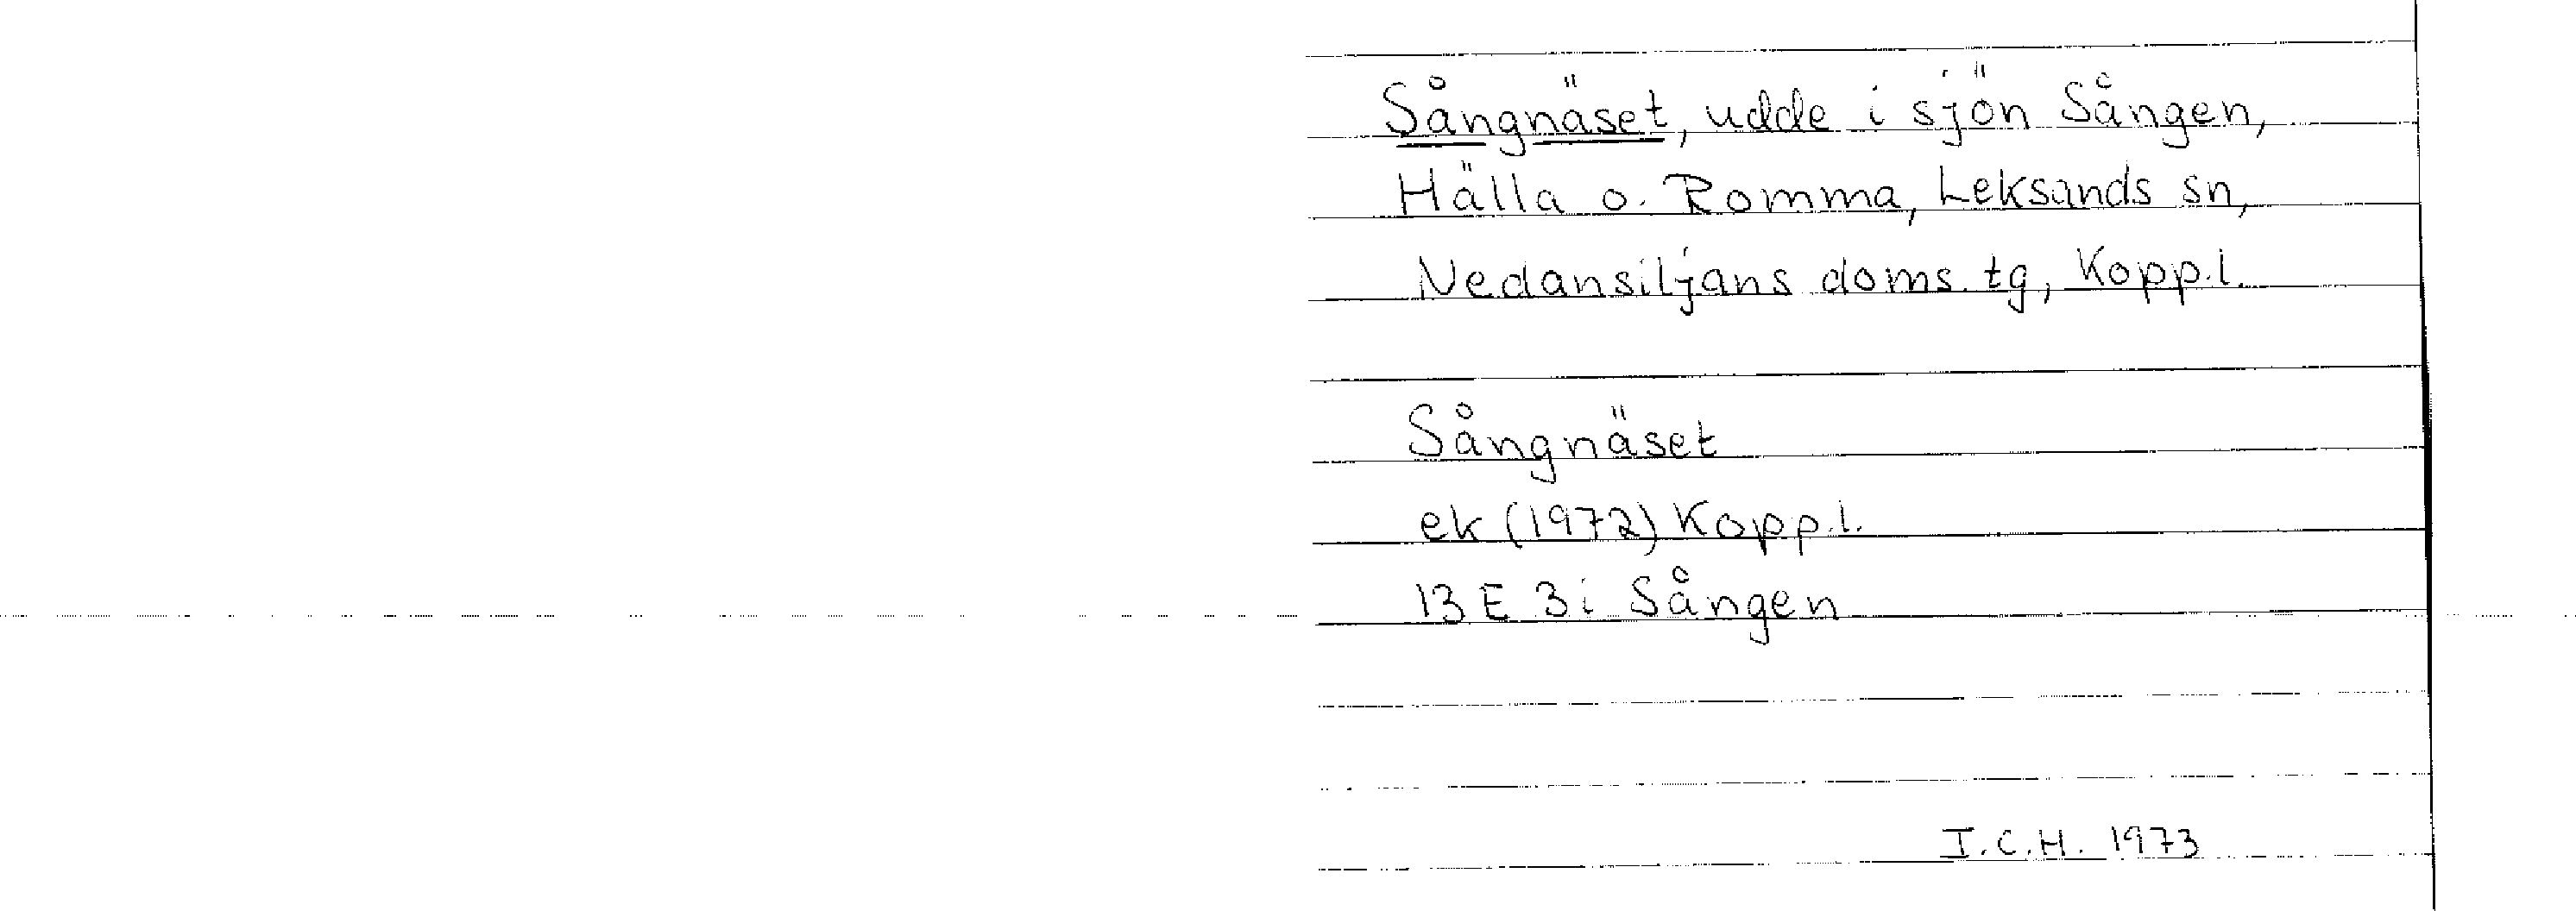 Sångnäset, udde i sjön Sången,
Hälla o. Romma, Leksands sn,
Nedansiljans doms. tg, Kopp.l.
Sångnäset
ek (1972) Kopp.l.
13 E 3i Sången
I.C.H. 1973